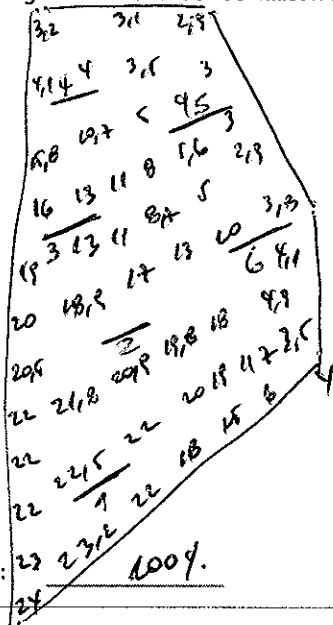 3,2 3,1 2,9
4,1 4 4 3,5 3
5,8 10,7 5 4,5 3
16 13 11 8 5,6 2,9
19 3 13 11 8,7 5 3,3
20 18,9 17 13 10 6 4,1
20,5 2 20,9 19,8 18 4,9
22 21,8 20 19 11 7 2,5
22 22,5 22 18 15 8
22 1 22
23 23,2
24
100%